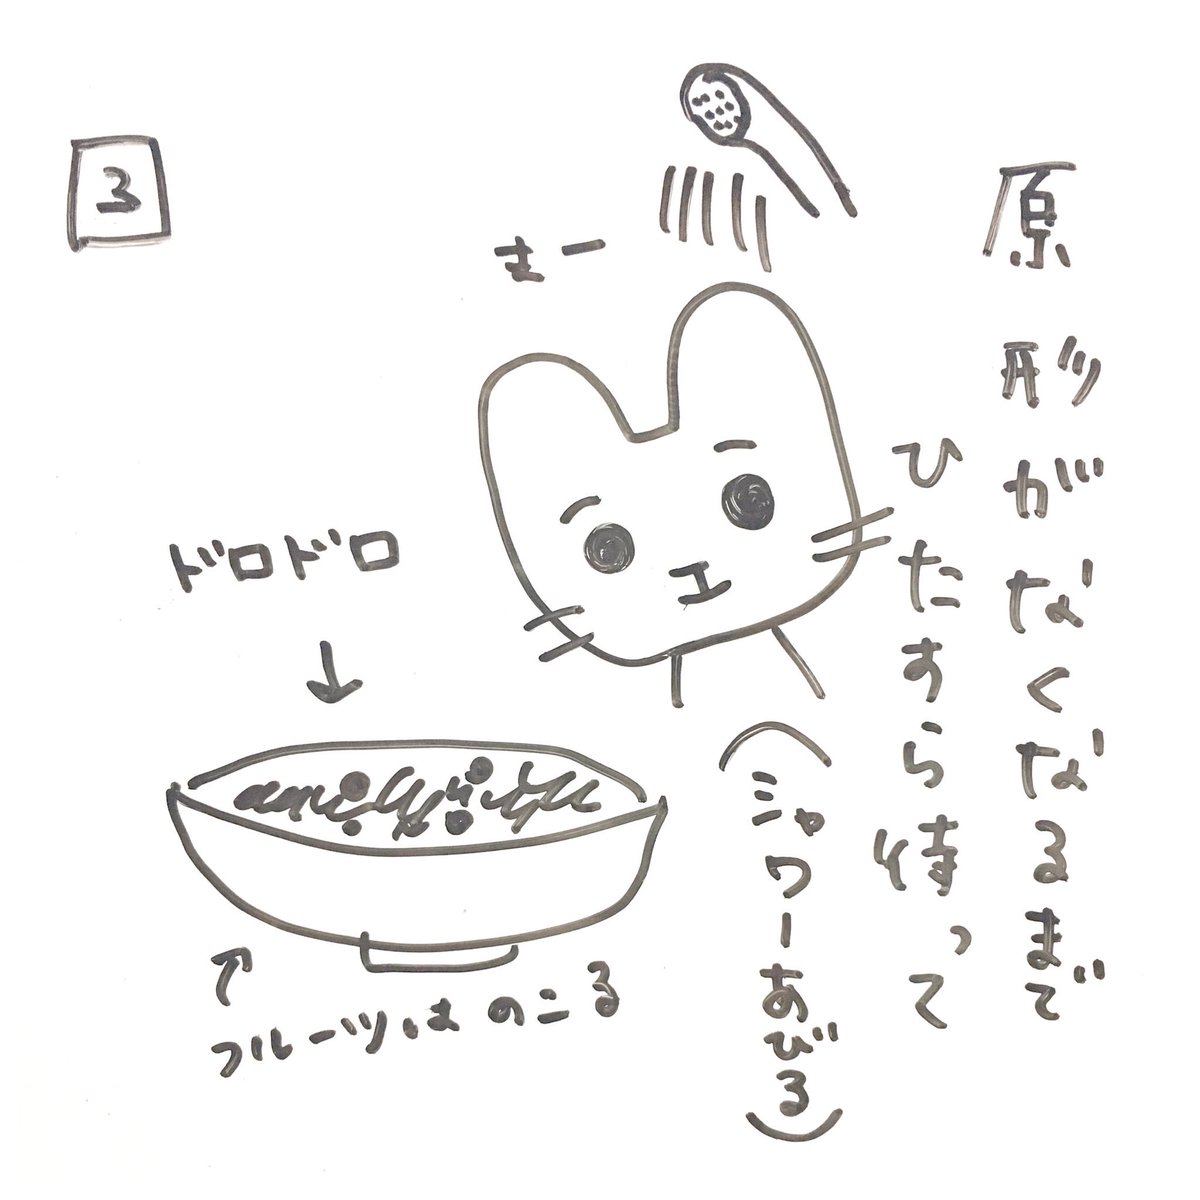 3
原形がなくなるまで
ひたすら待って
(シャワーあびる)
さー
ドロドロ
フルーツはのこる